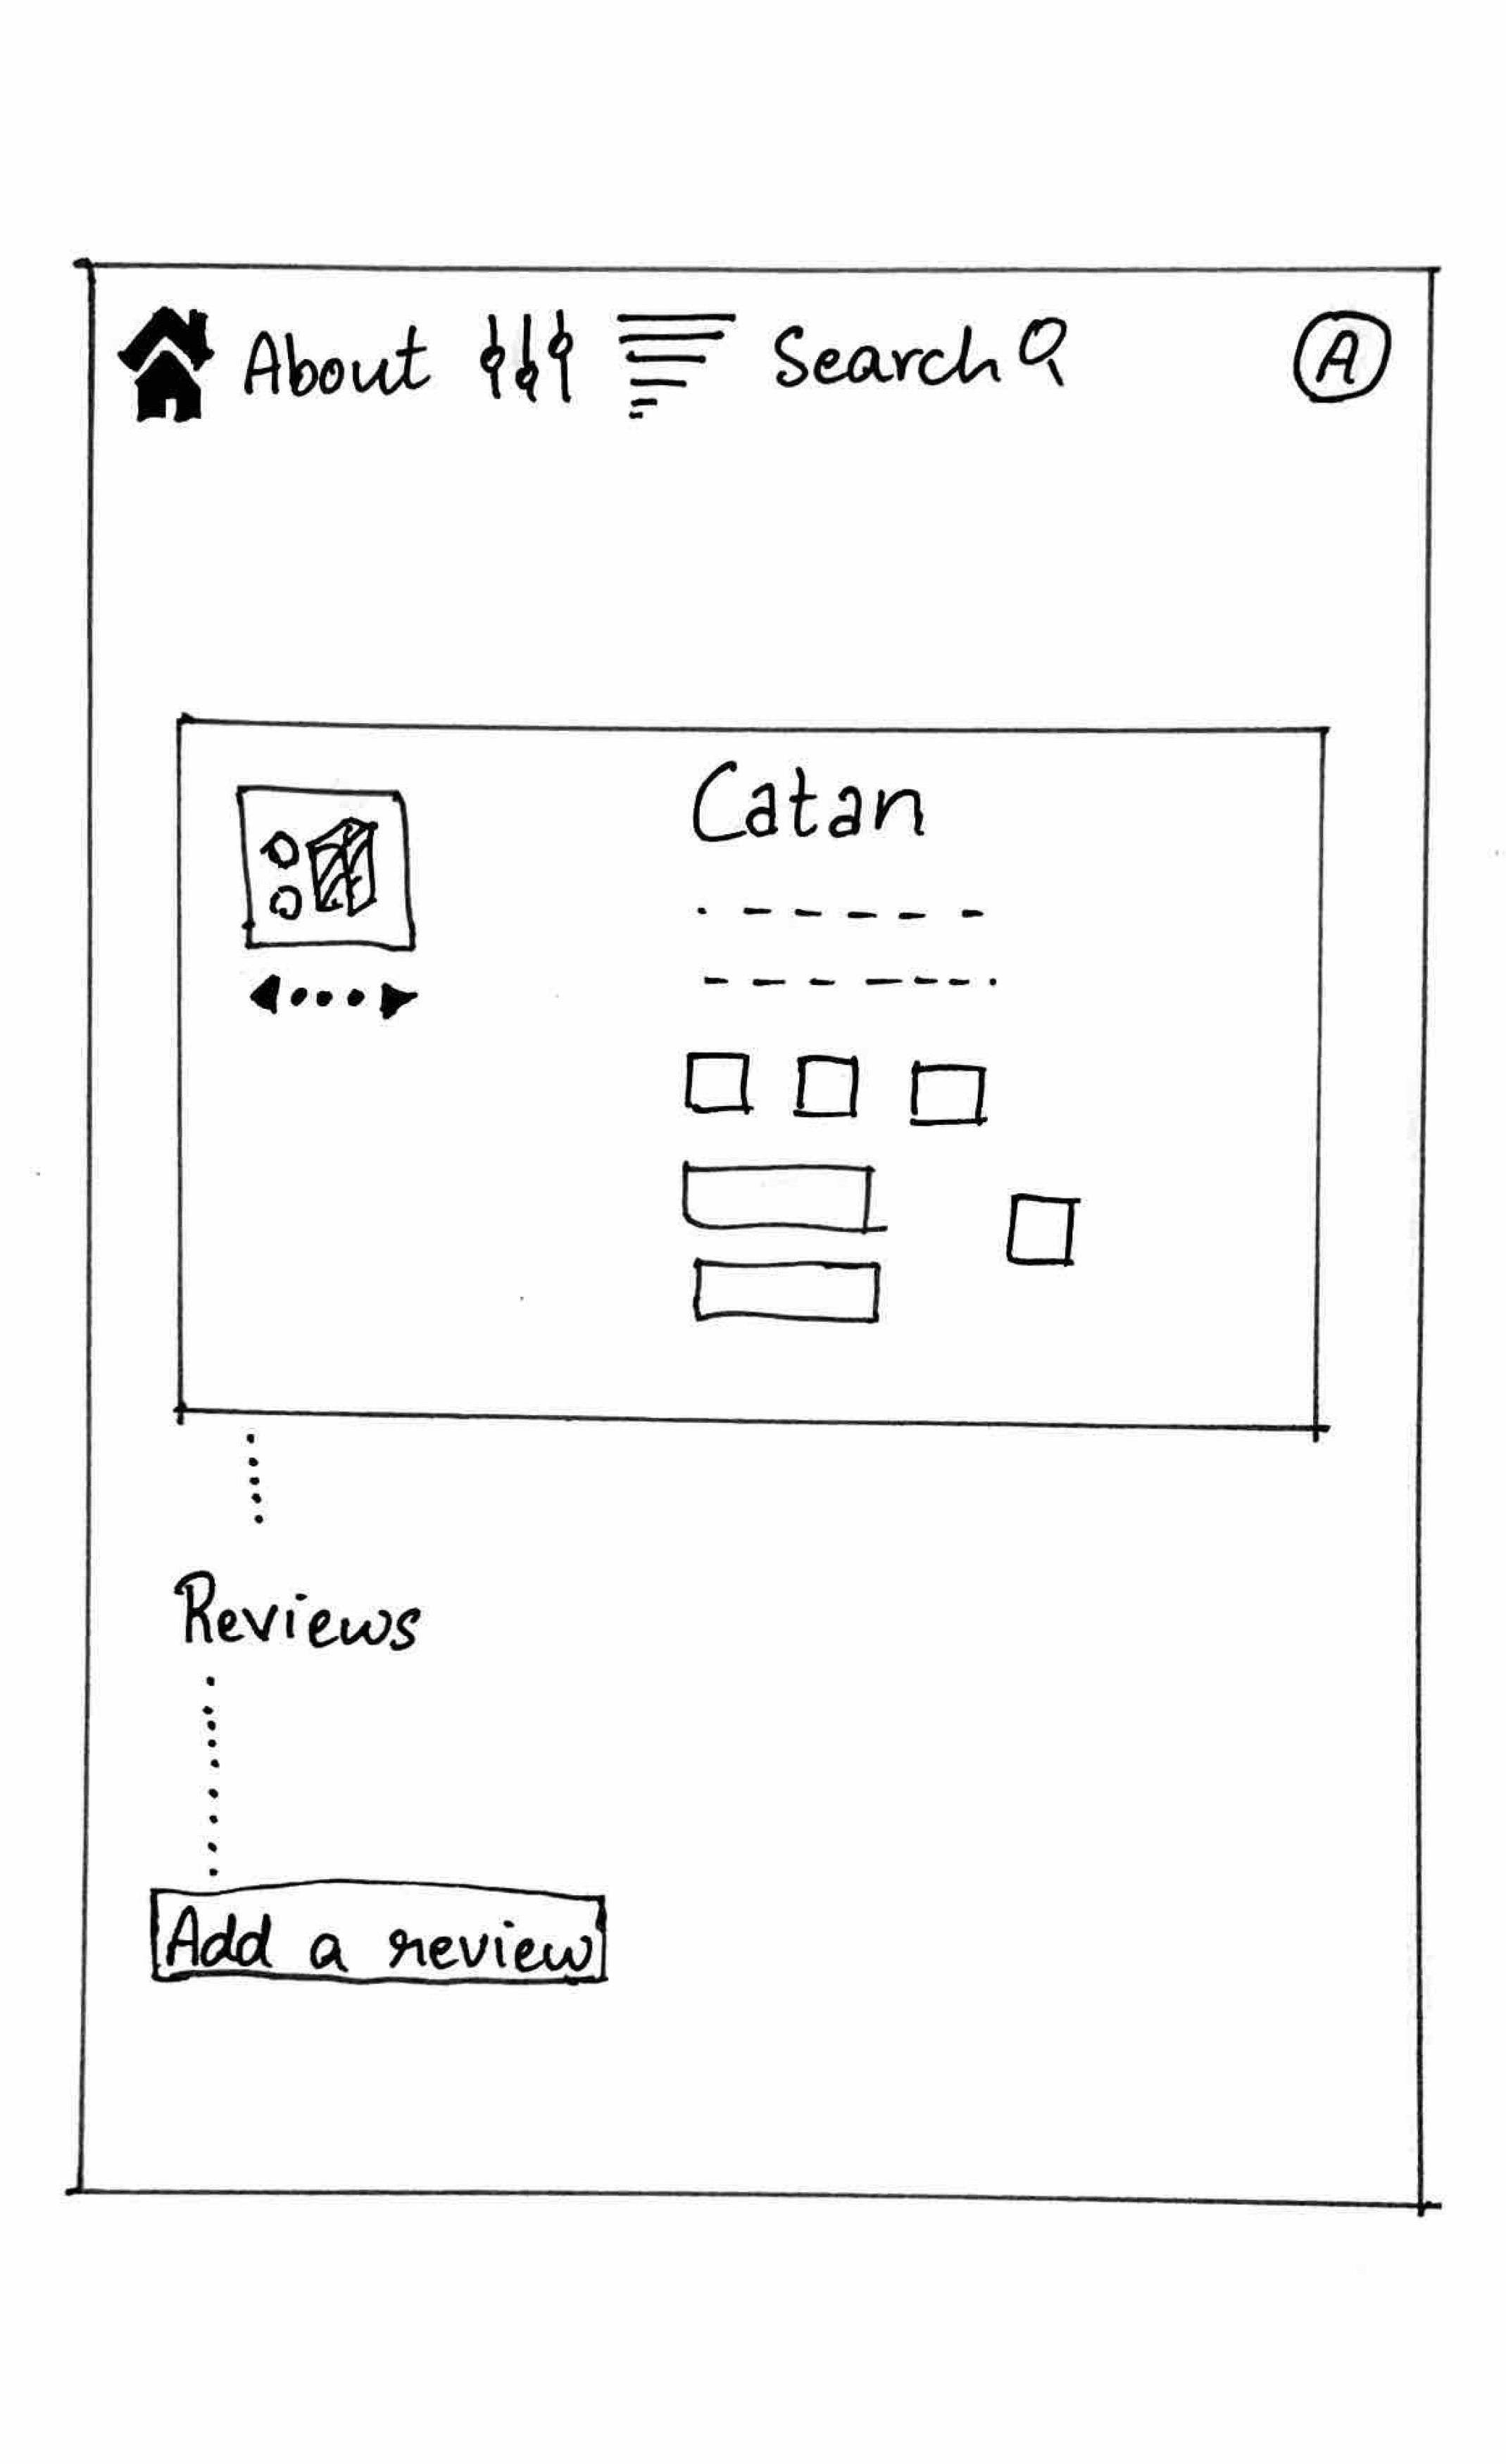 About Search A
Catan
Reviews
Add a review